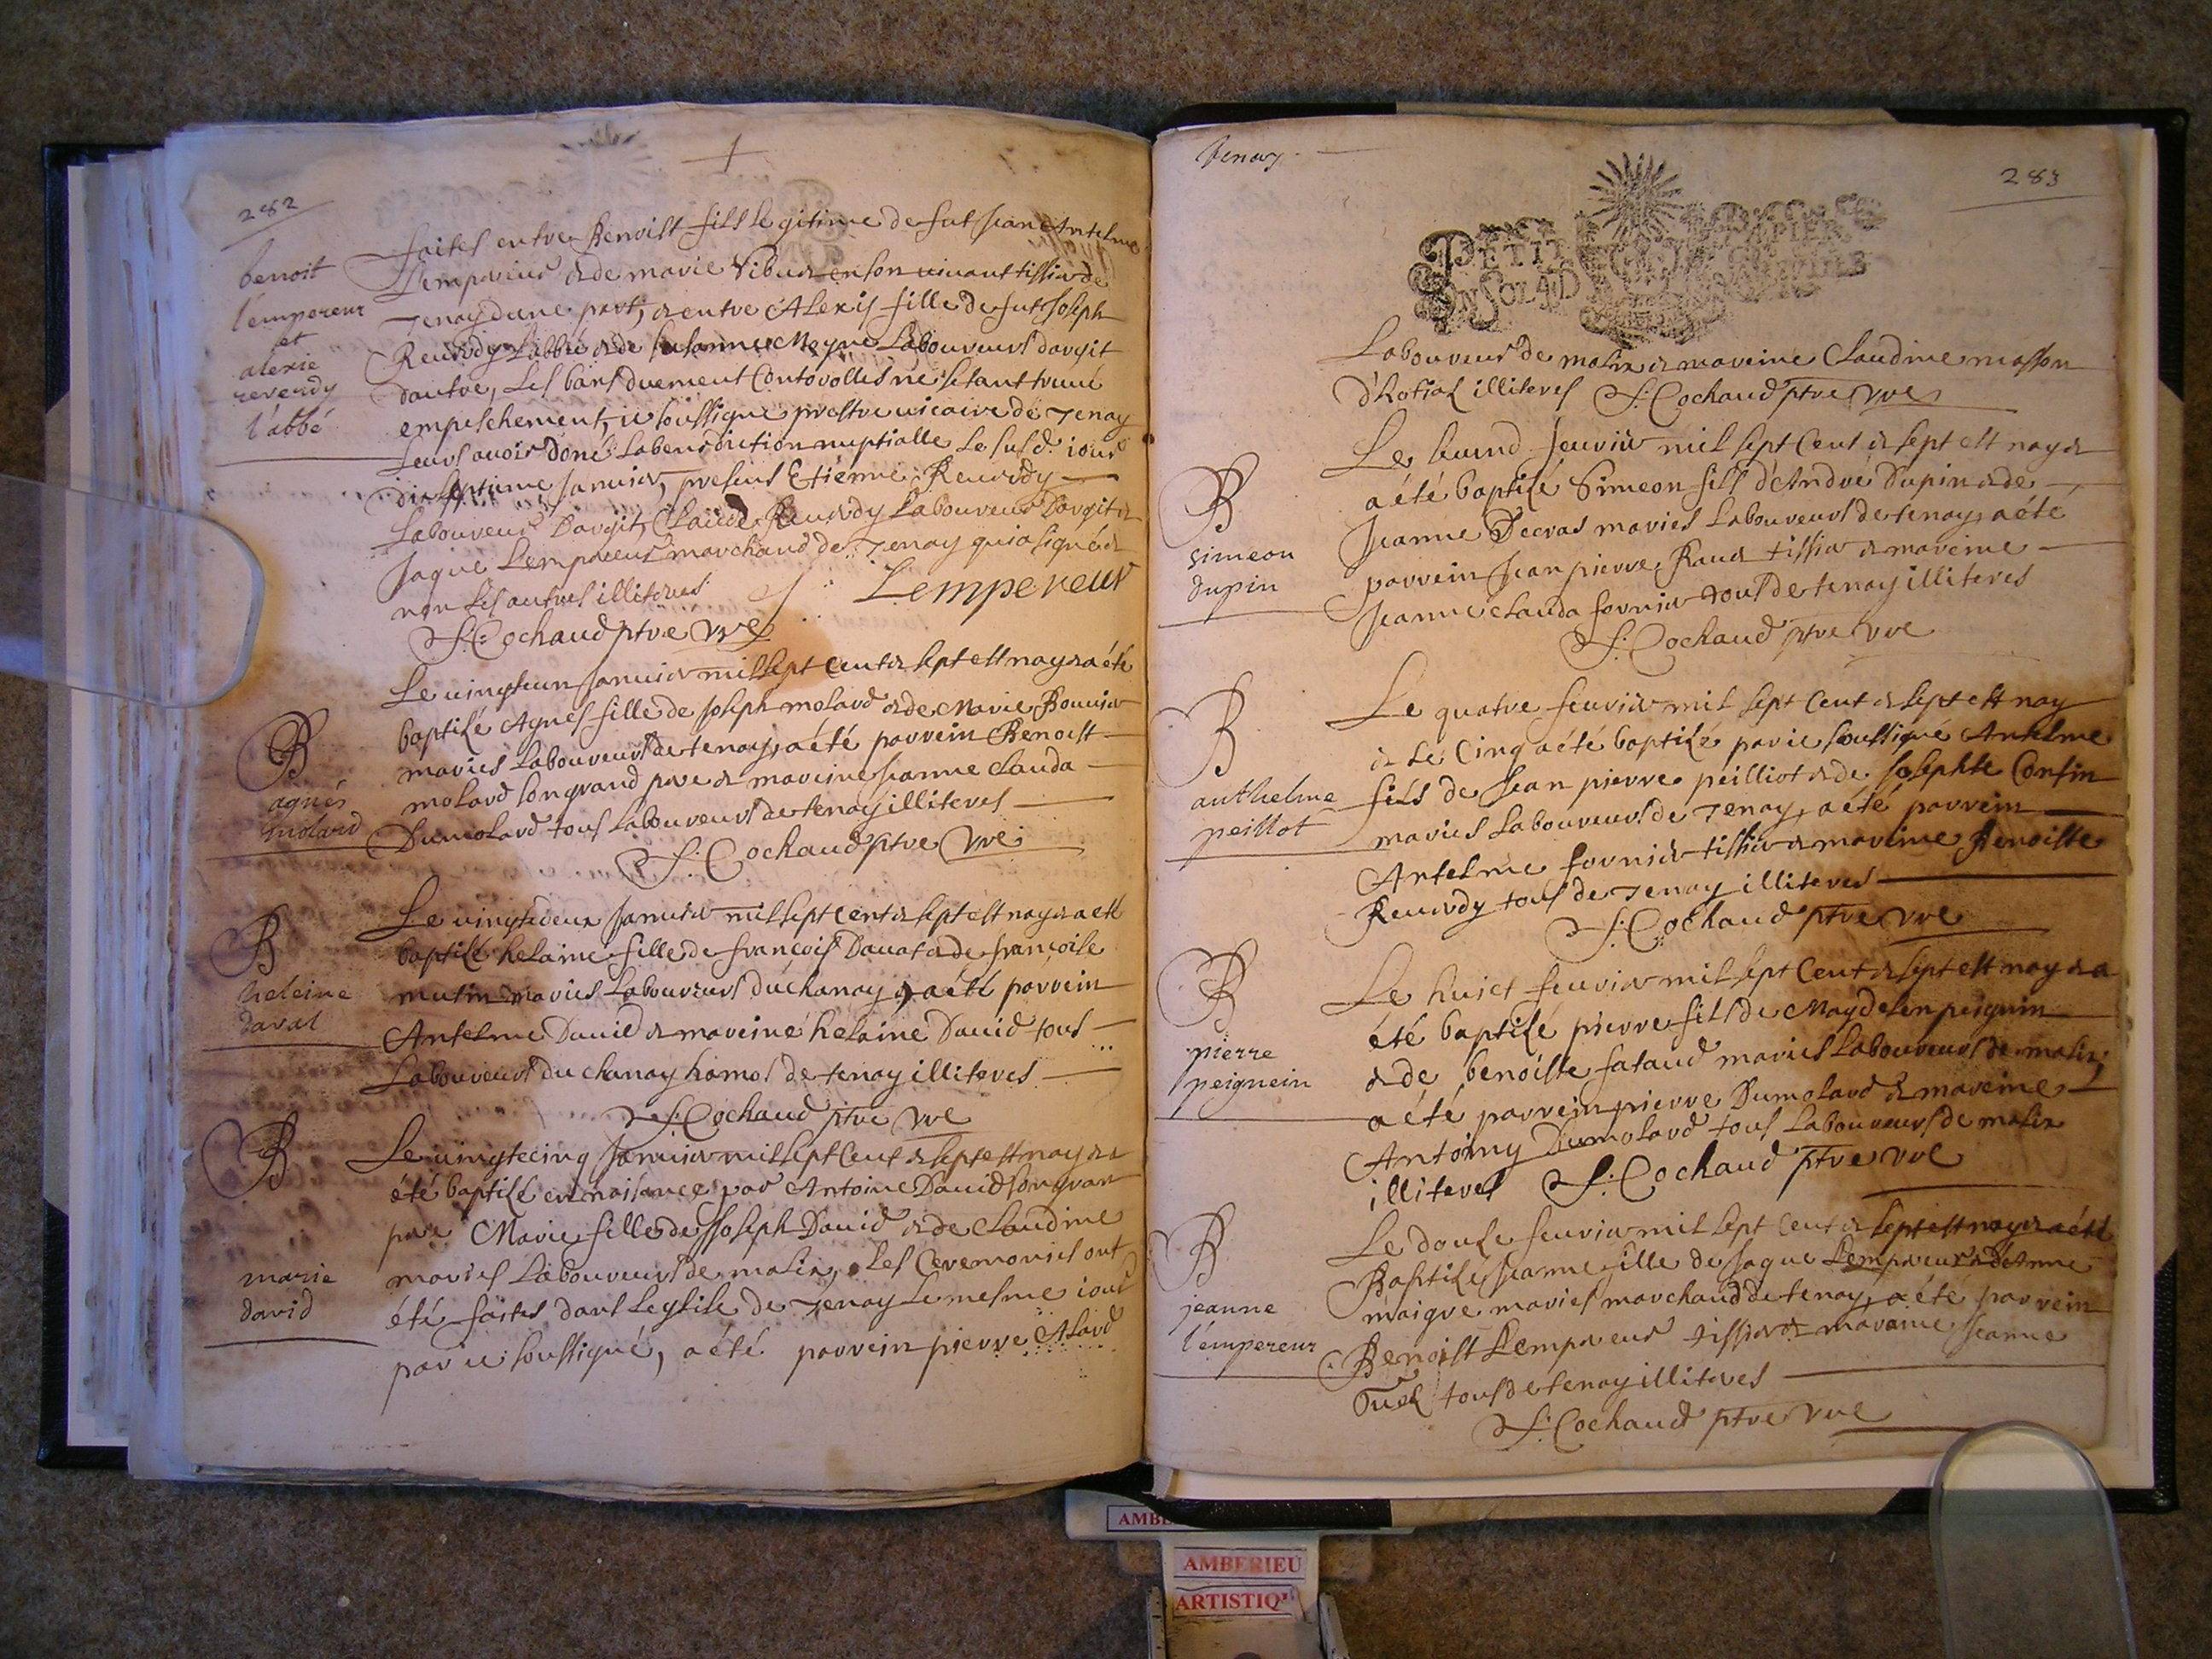 282
benoit
l'empereur
et
alexie
reverdy
l'abbé
faites entre Benoist fils legitime de fut Jean Antelme
Lempereur & de marie Ribud en son vivant tissier de
Tenay d'une part, & entre Alexis fille de fut Joseph
Reverdy Labbé & de Susanne Meyne Laboureurs dargit
dautre, Les bans duement Controollés ne sétant trouvé
empeschement, ie soussigné prestre vicaire de Tenay
Leurs avoir doné Labenediction nuptialle Le susd. iour
dixseptieme Janvier, presens Etienne Reverdy
Laboureur Dargit, Claude Reverdy Laboureur Dargit &
Jaque Lempereur marchand de Tenay qui a signé &
non Les autres illiteres Lempereur
f: Cochaud ptre vre
B
agnés
molard
Le vingteun Janvier mil sept Cent & sept est nay & a été
baptisé Agnes fille de Joseph molard & de Marie Bouvier
mariés Laboureurs de tenay, a été parrein Benoist
molard son grand pere & mareine Jeanne Clauda
Dumolard tous Laboureurs de tenay illiteres
f: Cochaud ptre vre
B
heleine
davat
Le vingtedeux Janvier mil sept Cent & sept est nay & a eté
baptisé helaine fille de françois Davat & de françoise
mutin mariés Laboureurs du chanay & a été parrein
Antelme David & mareine helaine David tous
Laboureurs du chanay hamos de tenay illiteres
f: Cochaud ptre vre
B
marie
david
Le vingtecinq Janvier mil sept Cent & sept est nay & a
été baptisé en naisance par Antoine David son gran
pere Marie fille de Joseph David & de Claudine
mariés Laboureurs de malix, Les Ceremonies ont
été faites dans Leglise de Tenay Le mesme iour
par ie soussigné, a été parrein pierre Alard
Tenay
283
PETIT PAPIER
UN SOL 4 D
Laboureur de malix & mareine Claudine masson
d'hotiak illiteres f: Cochaud ptre vre
B
simeon
dupin
Le second fevrier mil sept Cent & sept est nay &
a été baptisé Simeon fils d'André Dupin & de
Jeanne Decras mariés Laboureurs de tenay, a été
parrein Jean pierre Raud tissier & mareine
Jeanne Clauda fornier tous de tenay illiteres
f: Cochaud ptre vre
B
anthelme
peillot
Le quatre fevrier mil sept Cent & sept est nay
& Le Cinq a été baptisé par ie soussigné Antelme
fils de Jean pierre peilliot & de Josephte Consin
mariés Laboureurs de Tenay, a été parrein
Antelme fornier tissier & mareine Benoiste
Reverdy tous de Tenay illiteres
f: Cochaud ptre vre
B
pierre
peignein
Le huict fevrier mil sept Cent & sept est nay & a
été baptisé pierre fils de Magdelen peignin
& de benoiste fataud mariés Laboureurs de malix,
a été parrein pierre Dumolard & mareine
Antoiny Dumolard tous Laboureurs de malix
illiteres f: Cochaud ptre vre
B
jeanne
l'empereur
Le douse fevrier mil sept Cent & sept est nay & a été
Baptisé Jeanne fille de Jaque Lempereur & d'Anne
maigre mariés marchand de tenay, a été parrein
Benoist Lempereur tissier & mareine Jeanne
tous de tenay illiteres
f: Cochaud ptre vre
AMBERIEU
ARTISTIQ